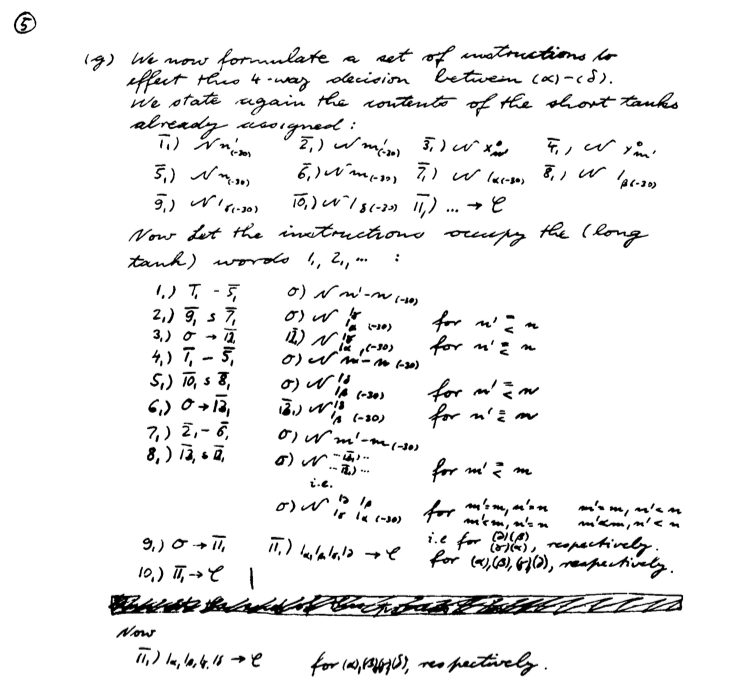 ⑤
(g) We now formulate a set of instructions to
effect this 4-way decision between (α)-(δ).
We state again the contents of the short tanks
already assigned:
1̄₁) N n'(-30) 2̄₁) N m'(-30) 3̄₁) N x⁰ₙ 4̄₁) N y⁰ₘ'
5̄₁) N n(-30) 6̄₁) N m(-30) 7̄₁) N lα(-30) 8̄₁) N lβ(-30)
9̄₁) N lγ(-30) 10̄₁) N lδ(-30) 11̄₁) ... → C
Now let the instructions occupy the (long
tank) words 1₁, 2₁, ... :
1₁) 1̄₁ - 5̄₁ O) N n'-n(-30)
2₁) 9̄₁ s 7̄₁ O) N lγ lα (-30) for n' ≥ < n
3₁) O → 12̄₁ 12̄₁) N lγ lα (-30) for n' ≥ < n
4₁) 1̄₁ - 5̄₁ O) N n'-n(-30)
5₁) 10̄₁ s 8̄₁ O) N lδ lβ (-30) for n' ≥ < n
6₁) O → 13̄₁ 13̄₁) N lδ lβ (-30) for n' ≥ < n
7₁) 2̄₁ - 6̄₁ O) N m'-m(-30)
8₁) 13̄₁ s 12̄₁ O) N -13̄₁)... -12̄₁)... for m' ≥ < m
i.e.
O) N lδ lβ lγ lα (-30) for m'=m, n'=n m'=m, n'<n
m'<m, n'=n m'<m, n'<n
i.e for (δ)(β) (γ)(α), respectively.
9₁) O → 11̄₁ 11̄₁) lα, lβ, lγ, lδ → C for (α),(β),(γ),(δ), respectively.
10₁) 11̄₁ → C
Now
11̄₁) lα, lβ, lγ, lδ → C for (α),(β),(γ),(δ), respectively.